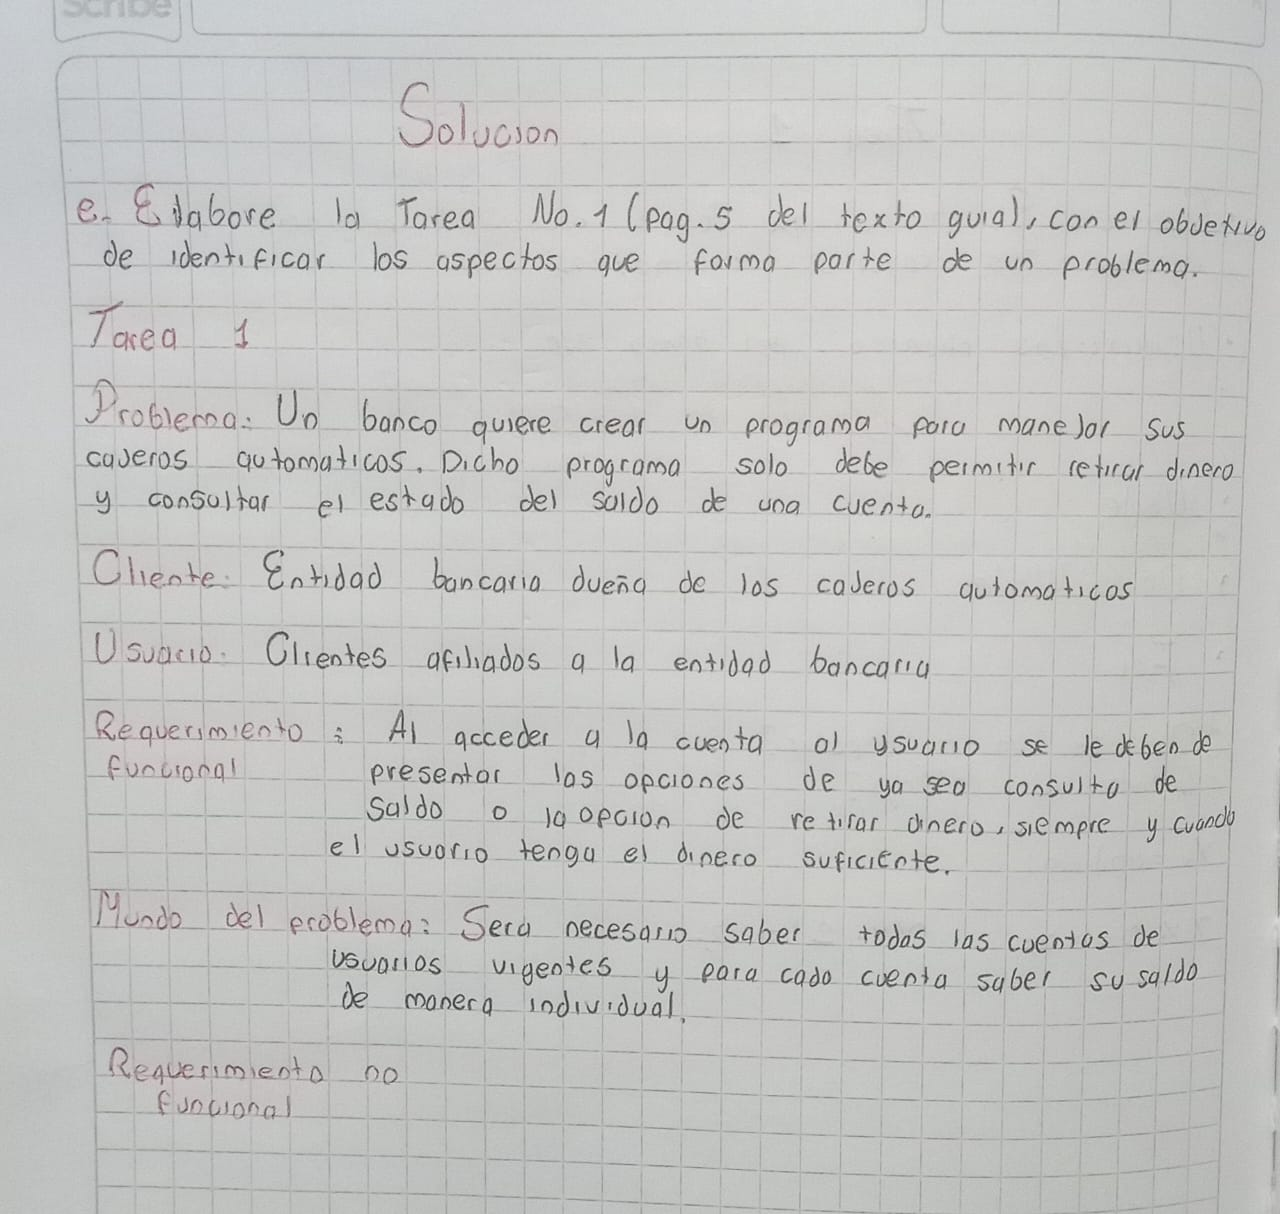 Scribe
Solucion
e. Elabore la Tarea No. 1 (pag. 5 del texto guia), con el objetivo
de identificar los aspectos que forma parte de un problema.
Tarea 1
Problema: Un banco quiere crear un programa para manejar sus
cajeros automaticos. Dicho programa solo debe permitir retirar dinero
y consultar el estado del saldo de una cuenta.
Cliente: Entidad bancaria dueña de los cajeros automaticos
Usuario: Clientes afiliados a la entidad bancaria
Requerimiento : Al acceder a la cuenta al usuario se le deben de
funcional presentar las opciones de ya sea consulta de
saldo o la opcion de retirar dinero, siempre y cuando
el usuario tenga el dinero suficiente.
Mundo del problema: Sera necesario saber todas las cuentas de
usuarios vigentes y para cada cuenta saber su saldo
de manera individual.
Requerimiento no
funcional